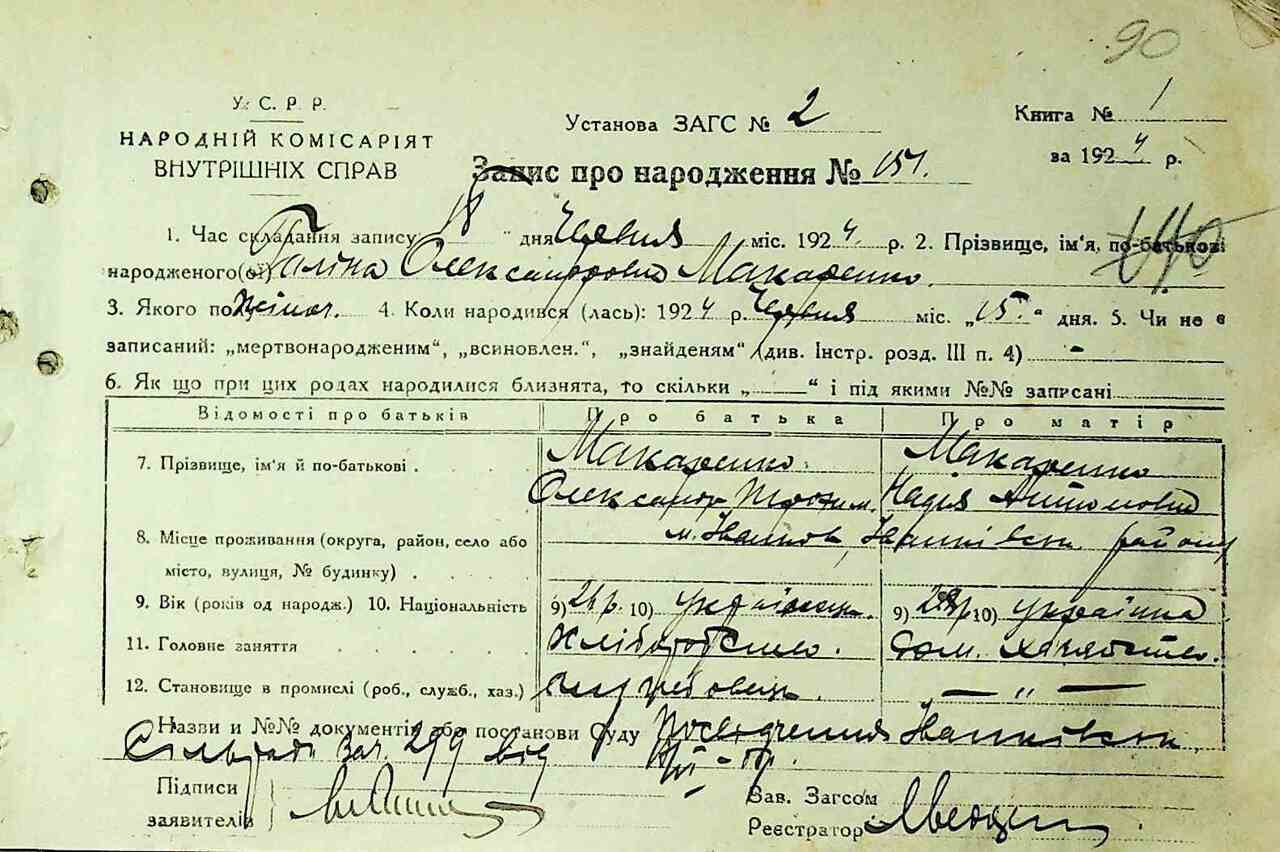 90
У. С. Р. Р.
НАРОДНІЙ КОМІСАРІЯТ
ВНУТРІШНІХ СПРАВ
Установа ЗАГС № 2
Книга № 1
за 1924 р.
Запис про народження № 151.
1. Час складання запису 18 " дня Червня міс. 1924 р. 2. Прізвище, ім'я, по-батькові
народженого(ої) Галіна Олександровна Макаренко.
3. Якого полу жіноч. 4. Коли народився (лась): 1924 р. Червня міс. „15" дня. 5. Чи не є
записаний: „мертвонародженим“, „всиновлен.“, „знайденям“ (див. Інстр. розд. III п. 4) -
6. Як що при цих родах народилися близнята, то скільки „ “ і під якими №№ записані
Відомості про батьків Про батька Про матір
7. Прізвище, ім'я й по-батькові Макаренко Макаренко
Олександр Трохим. Надія Антоновна
8. Місце проживання (округа, район, село або м. Іванков, Іванківськ. району
місто, вулиця, № будинку)
9. Вік (років од народж.) 10. Національність 9) 26 р. 10) українець. 9) 10) українка
11. Головне заняття хліборобство. Дом. хазяйство.
12. Становище в промислі (роб., служб., хаз.) — „ —
Назви и №№ документів або постанови Суду Посвідчення Іванківськ.
Сільради за ч. 299 від
Підписи
заявителів
Зав. Загсом
Реєстратор